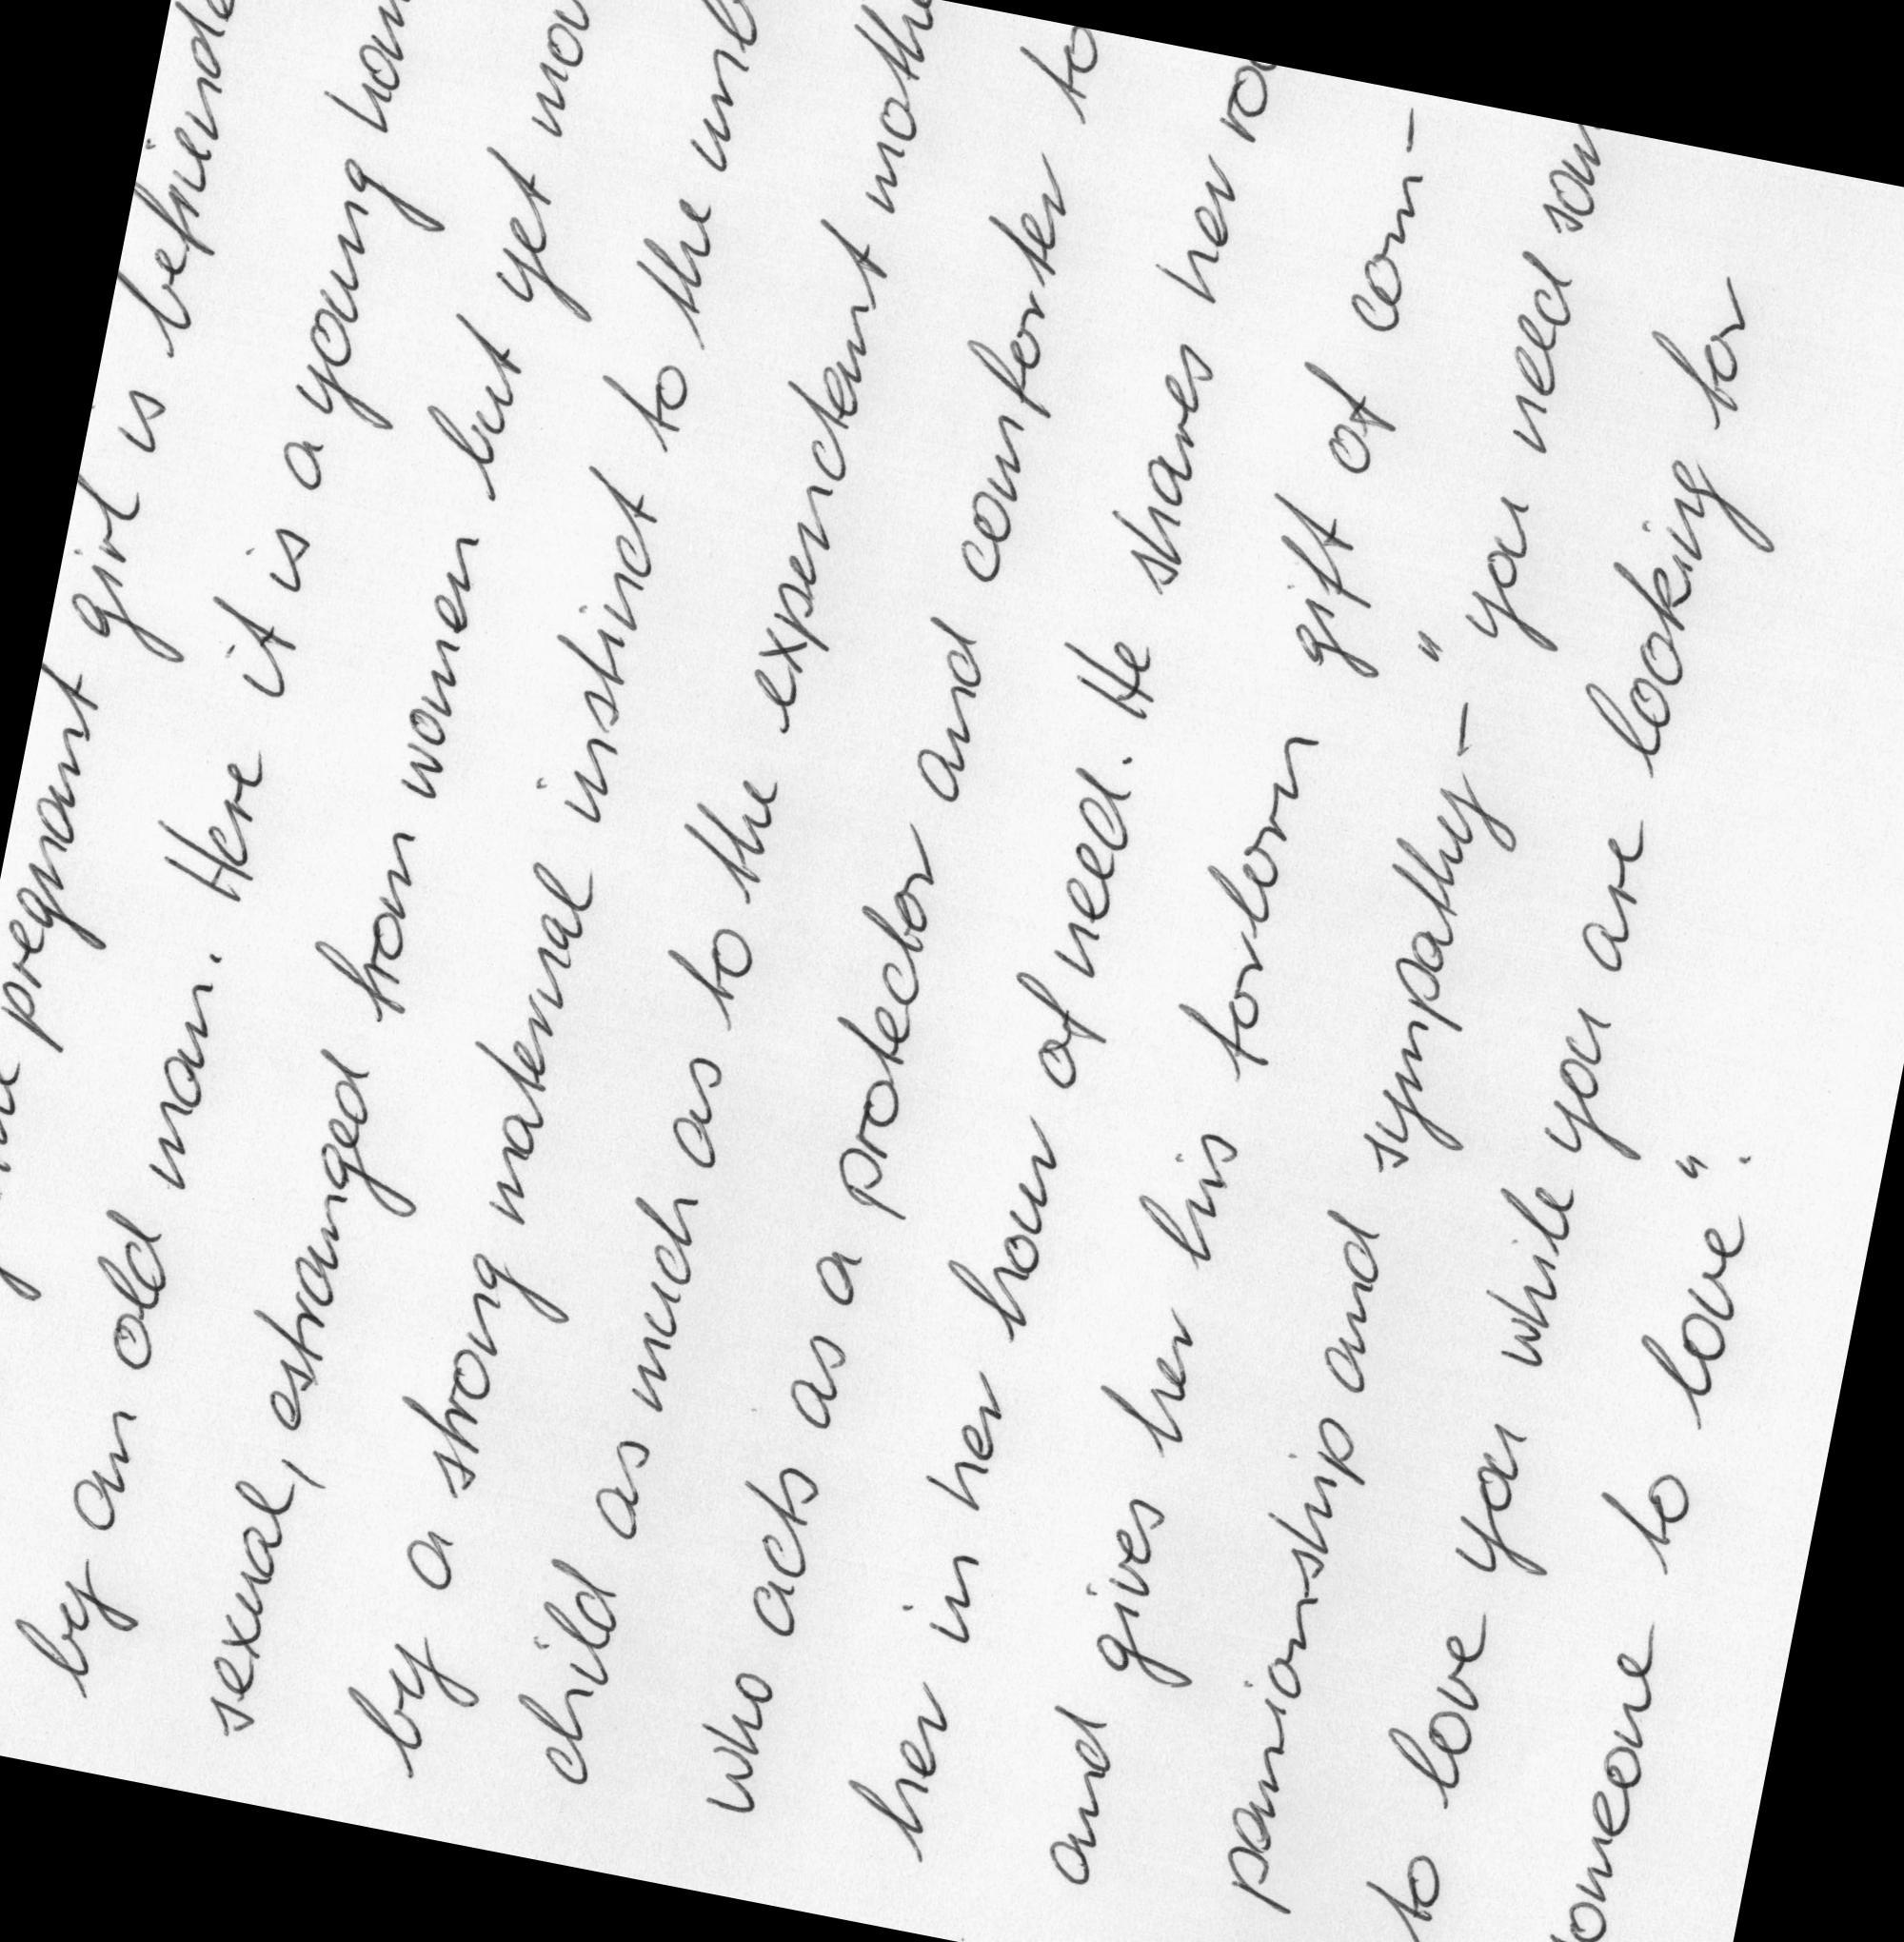 pregnant girl is
by an old man. Here it is a young
sexual, estranged from women but yet
by a strong maternal instinct to the
child as much as to the expendant
who acts as a protector and comforter to
her in her hour of need. He shares her
and gives her his forlorn gift of com-
panionship and sympathy - " you need
to love you while you are looking for
someone to love".